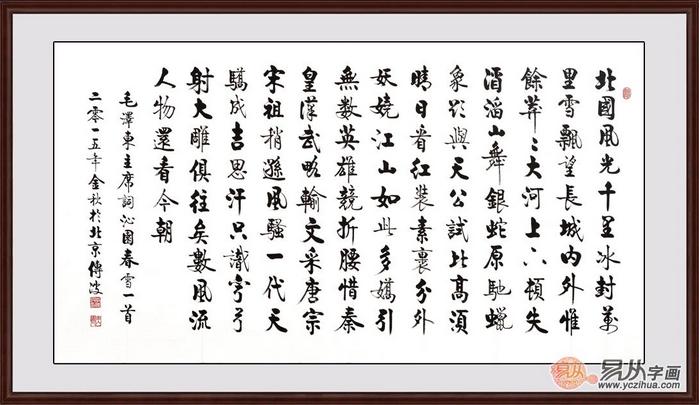 北國風光千里冰封萬
里雪飄望長城內外惟
餘莽〻大河上下頓失
滔滔山舞銀蛇原馳蠟
象欲與天公試比高須
晴日看紅裝素裹分外
妖嬈江山如此多嬌引
無數英雄競折腰惜秦
皇漢武略輸文采唐宗
宋祖稍遜風騷一代天
驕成吉思汗只識彎弓
射大雕俱往矣數風流
人物還看今朝
毛澤東主席詞沁園春雪一首
二零一五年金秋於北京傅波
易从字画
www.yczihua.com